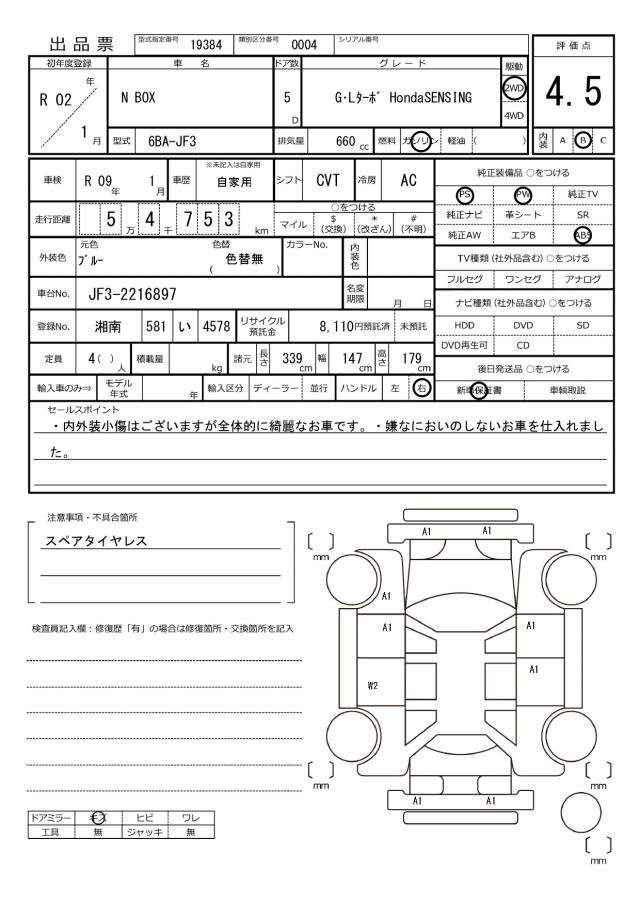 出品票 型式指定番号 19384 類別区分番号 0004 シリアル番号
初年度登録 車名 ドア数 グレード 駆動 評価点
R 02 年 1 月 N BOX 5 D G・Lターボ HondaSENSING 2WD 4WD 4.5
型式 6BA-JF3 排気量 660 cc 燃料 ガソリン 軽油 ( ) 内装 A B C
車検 R 09 年 1 月 車歴 ※未記入は自家用 自家用 シフト CVT 冷房 AC
純正装備品 ○をつける
PS PW 純正TV
純正ナビ 革シート SR
純正AW エアB ABS
走行距離 5 万 4 千 7 5 3 km ○をつける
マイル $ (交換) * (改ざん) # (不明)
外装色 元色 ブルー 色替 ( 色替無 ) カラーNo. 内装色
TV種類 (社外品含む) ○をつける
フルセグ ワンセグ アナログ
車台No. JF3-2216897 名変期限 月 日
ナビ種類 (社外品含む) ○をつける
HDD DVD SD
DVD再生可 CD
登録No. 湘南 581 い 4578 リサイクル預託金 8,110円預託済 未預託
定員 4( ) 人 積載量 kg 諸元 長さ 339 cm 幅 147 cm 高さ 179 cm
後日発送品 ○をつける
新車保証書 車輌取説
輸入車のみ⇒ モデル年式 年 輸入区分 ディーラー 並行 ハンドル 左 右
セールスポイント
・内外装小傷はございますが全体的に綺麗なお車です。・嫌なにおいのしないお車を仕入れまし
た。
注意事項・不具合箇所
スペアタイヤレス
検査員記入欄：修復歴「有」の場合は修復箇所・交換箇所を記入
A1 A1
mm mm
A1
A1 A1
A1
W2
mm mm
A1 A1
mm
ドアミラー キズ ヒビ ワレ
工具 無 ジャッキ 無